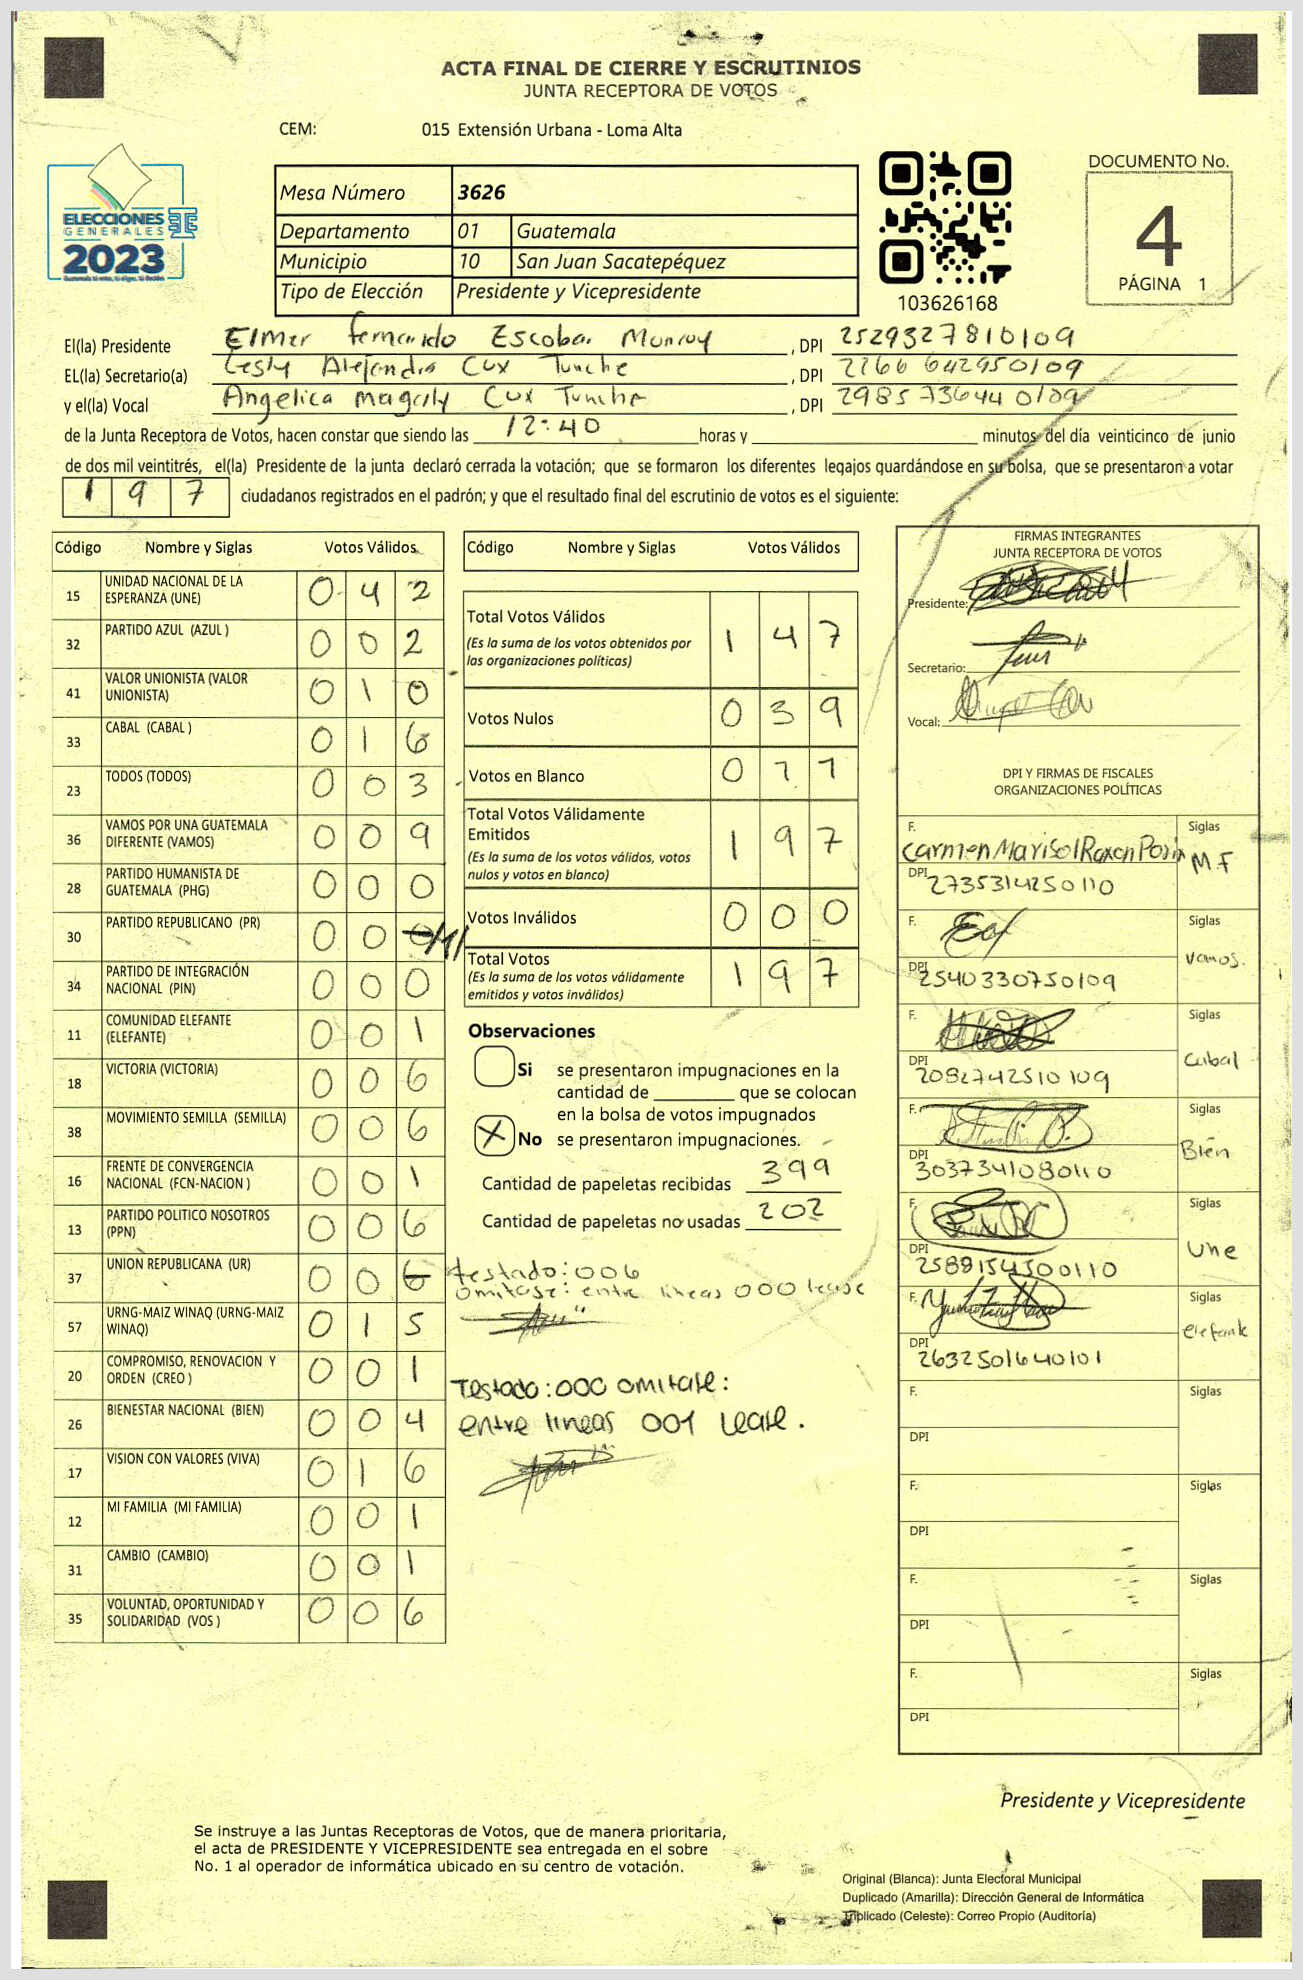 ACTA FINAL DE CIERRE Y ESCRUTINIOS
JUNTA RECEPTORA DE VOTOS
CEM: 015 Extensión Urbana - Loma Alta
ELECCIONES
GENERALES
2023
Mesa Número 3626
Departamento 01 Guatemala
Municipio 10 San Juan Sacatepéquez
Tipo de Elección Presidente y Vicepresidente
103626168
DOCUMENTO No.
4
PÁGINA 1
El(la) Presidente Elmer Fernando Escobar Monroy , DPI 2529327810109
EL(la) Secretario(a) Lesly Alejandra Cux Tunche , DPI 2266642950109
y el(la) Vocal Angelica Magaly Cux Tunche , DPI 2985736440109
de la Junta Receptora de Votos, hacen constar que siendo las 12:40 horas y minutos del día veinticinco de junio
de dos mil veintitrés, el(la) Presidente de la junta declaró cerrada la votación; que se formaron los diferentes legajos guardándose en su bolsa, que se presentaron a votar
197 ciudadanos registrados en el padrón; y que el resultado final del escrutinio de votos es el siguiente:
Código Nombre y Siglas Votos Válidos
15 UNIDAD NACIONAL DE LA ESPERANZA (UNE) 0 4 2
32 PARTIDO AZUL (AZUL ) 0 0 2
41 VALOR UNIONISTA (VALOR UNIONISTA) 0 1 0
33 CABAL (CABAL ) 0 1 6
23 TODOS (TODOS) 0 0 3
36 VAMOS POR UNA GUATEMALA DIFERENTE (VAMOS) 0 0 9
28 PARTIDO HUMANISTA DE GUATEMALA (PHG) 0 0 0
30 PARTIDO REPUBLICANO (PR) 0 0 0 /1/
34 PARTIDO DE INTEGRACIÓN NACIONAL (PIN) 0 0 0
11 COMUNIDAD ELEFANTE (ELEFANTE) 0 0 1
18 VICTORIA (VICTORIA) 0 0 6
38 MOVIMIENTO SEMILLA (SEMILLA) 0 0 6
16 FRENTE DE CONVERGENCIA NACIONAL (FCN-NACION ) 0 0 1
13 PARTIDO POLITICO NOSOTROS (PPN) 0 0 6
37 UNION REPUBLICANA (UR) 0 0 6
57 URNG-MAIZ WINAQ (URNG-MAIZ WINAQ) 0 1 5
20 COMPROMISO, RENOVACION Y ORDEN (CREO ) 0 0 1
26 BIENESTAR NACIONAL (BIEN) 0 0 4
17 VISION CON VALORES (VIVA) 0 1 6
12 MI FAMILIA (MI FAMILIA) 0 0 1
31 CAMBIO (CAMBIO) 0 0 1
35 VOLUNTAD, OPORTUNIDAD Y SOLIDARIDAD (VOS ) 0 0 6
Código Nombre y Siglas Votos Válidos
Total Votos Válidos 1 4 7
(Es la suma de los votos obtenidos por
las organizaciones políticas)
Votos Nulos 0 3 9
Votos en Blanco 0 1 1
Total Votos Válidamente
Emitidos 1 9 7
(Es la suma de los votos válidos, votos
nulos y votos en blanco)
Votos Inválidos 0 0 0
Total Votos 1 9 7
(Es la suma de los votos válidamente
emitidos y votos inválidos)
Observaciones
Si se presentaron impugnaciones en la
cantidad de ________ que se colocan
en la bolsa de votos impugnados
X No se presentaron impugnaciones.
Cantidad de papeletas recibidas 399
Cantidad de papeletas no usadas 202
testado: 006
omitase: entre lineas 000 lease
Testado: 000 omitase:
entre lineas 001 Lease.
FIRMAS INTEGRANTES
JUNTA RECEPTORA DE VOTOS
Presidente:
Secretario:
Vocal:
DPI Y FIRMAS DE FISCALES
ORGANIZACIONES POLÍTICAS
F. Carmen Marisol Raxon Siglas M.F
DPI 2735314250110
F. Siglas Vamos.
DPI 2540330750109
F. Siglas Cabal
DPI 2082742510109
F. Siglas Bien
DPI 3037341080110
F. Siglas Une
DPI 2589154500110
F. Siglas elefante
DPI 2632501640101
F. Siglas
DPI
F. Siglas
DPI
F. Siglas
DPI
F. Siglas
DPI
Presidente y Vicepresidente
Se instruye a las Juntas Receptoras de Votos, que de manera prioritaria,
el acta de PRESIDENTE Y VICEPRESIDENTE sea entregada en el sobre
No. 1 al operador de informática ubicado en su centro de votación.
Original (Blanca): Junta Electoral Municipal
Duplicado (Amarilla): Dirección General de Informática
Triplicado (Celeste): Correo Propio (Auditoría)